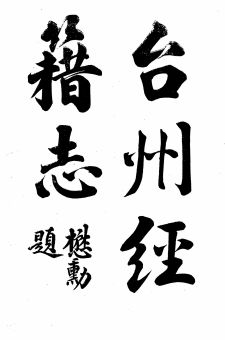 台州經
籍志
懋勳
題